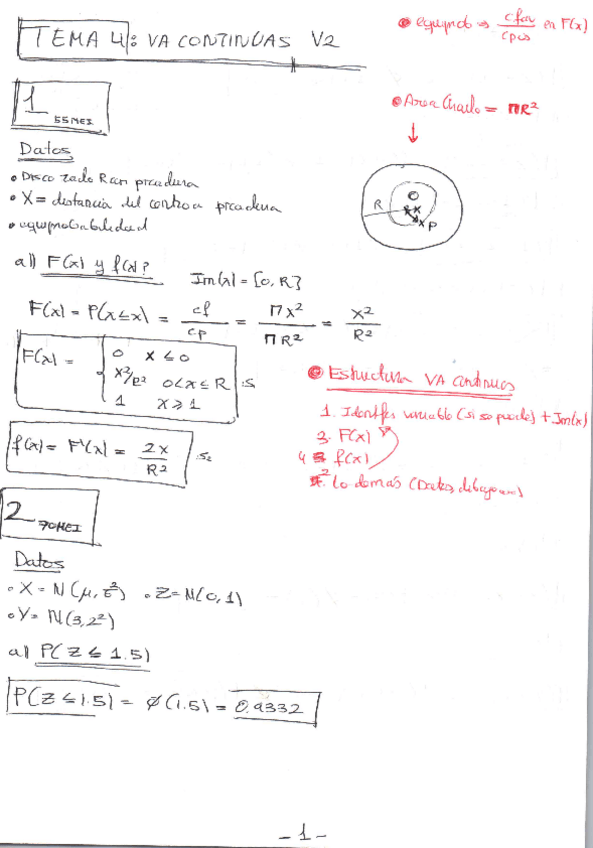 TEMA 4: VA CONTINUAS V2
• equiprob → cfav/cpos en F(x)
1 55MEI
• Area Circulo = πR²
Datos
• Disco radio R con picadura
• X = distancia del centro a picadura
• equiprobabilidad
R
O
x
P
a) F(x) y f(x)?
Im(x) = [0, R}
F(x) = P(X ≤ x) = cf/cp = πx²/πR² = x²/R²
F(x) = { 0 x ≤ 0
x²/R² 0 < x ≤ R
1 x ≥ 1
f(x) = F'(x) = 2x/R²
• Estructura VA continuas
1. Identifcar variable (si se puede) + Im(x)
3. F(x)
4 f(x)
2. Lo demas (Datos, dibujo)
2 70MEI
Datos
• X = N(μ, σ²) • Z = N(0, 1)
• Y = N(3, 2²)
a) P(Z ≤ 1.5)
P(Z ≤ 1.5) = Ø(1.5) = 0.9332
- 1 -